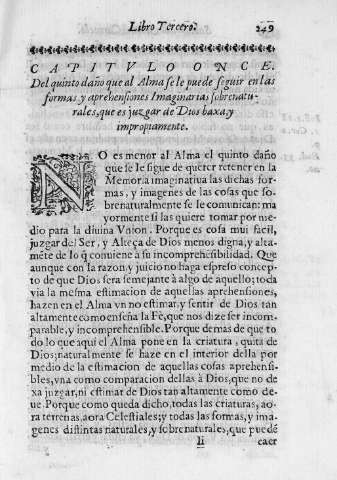 Libro Tercero. 249
CAPITVLO ONCE.
Del quinto daño que al Alma se le puede seguir en las
formas y aprehensiones Imaginarias sobrenatu-
rales, que es juzgar de Dios baxa, y
impropiamente.
NO es menor al Alma el quinto daño
que se le sigue de querer retener en la
Memoria imaginativa las dichas for-
mas, y imagenes de las cosas que so-
brenaturalmente se le comunican: ma
yormente si las quiere tomar por me-
dio para la diuina Vnion. Porque es cosa mui facil,
juzgar del Ser, y Alteça de Dios menos digna, y alta-
mēte de lo q̄ conviene à su incomprehēsibilidad. Que
aunque con la razon y juicio no haga espreso concep-
to de que Dios sera semejante à algo de aquello; toda
via la mesma estimacion de aquellas aprehensiones,
hazen en el Alma vn no estimar, y sentir de Dios tan
altamente como enseña la Fè, que nos dize ser incom-
parable, y incomprehensible. Porque demas de que to
do lo que aqui el Alma pone en la criatura, quita de
Dios; naturalmente se haze en el interior della por
medio de la estimacion de aquellas cosas aprehensi-
bles, vna como comparacion dellas à Dios, que no de
xa juzgar, ni estimar de Dios tan altamente como de-
ue. Porque como queda dicho, todas las criaturas, ao-
ra terrenas, aora Celestiales; y todas las formas, y ima-
genes distintas naturales, y sobrenaturales, que puedē
Ii caer